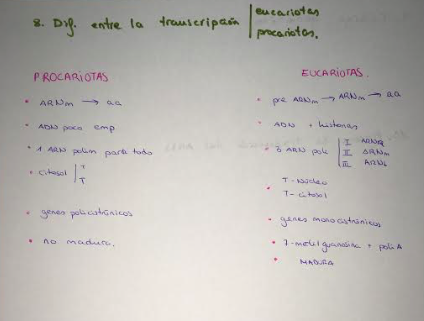 8. Dif. entre la transcripción | eucariotas
procariotas.
PROCARIOTAS
• ARNm → aa
• ADN poco emp
• 1 ARN polim para todo
• citosol | T
T
• genes policistrónicos
• no madura.
EUCARIOTAS.
• pre ARNm → ARNm → aa
• ADN + histonas
• 3 ARN pol | I ARNr
II ARNm
III ARNt
T - Núcleo
T - citosol
• genes monocistrónicos
• 7-metil guanosina + poli A
• MADURA